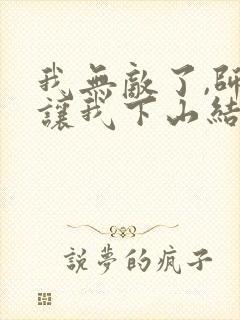 我無敵了,師
讓我下山結
說夢的瘋子